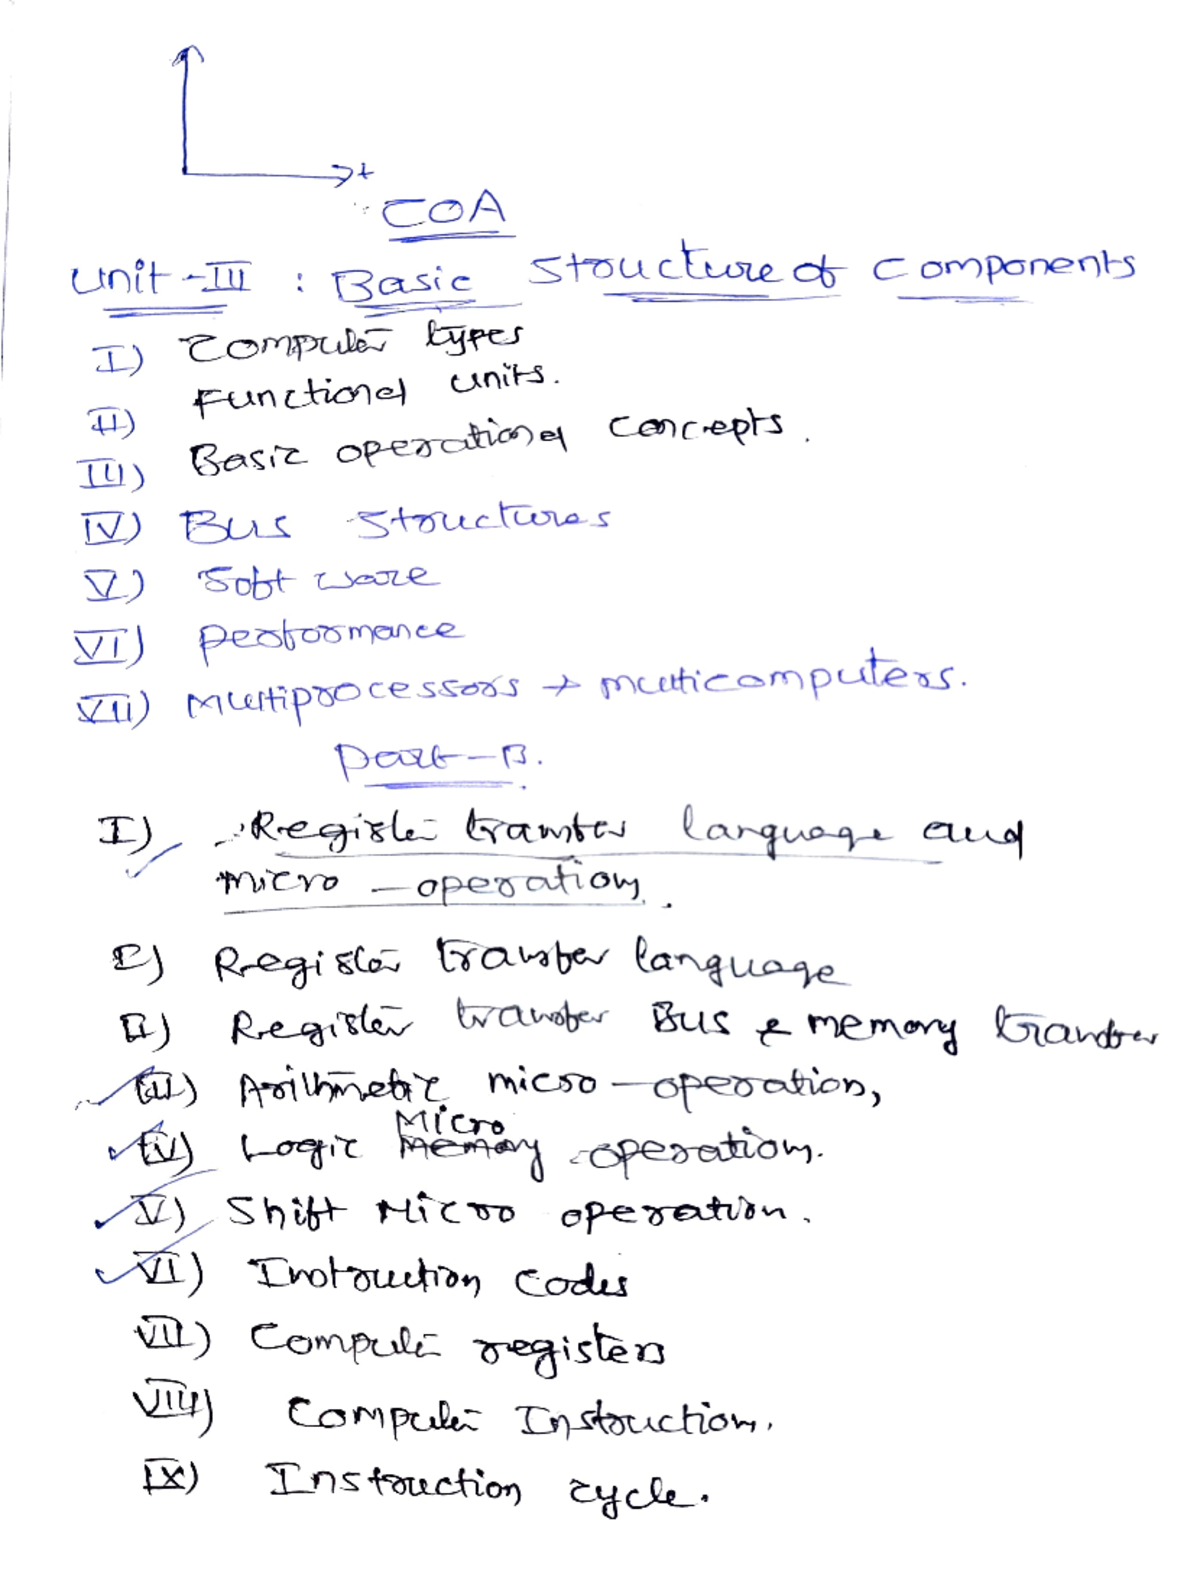 COA
Unit-III : Basic Structure of Components
I) Computer types
II) Functional units.
III) Basic operational concepts.
IV) Bus Structures
V) Software
VI) Performance
VII) Multiprocessors → multicomputers.
Part-B.
I) Register transfer language and
micro-operations.
I) Register transfer language
II) Register transfer Bus & memory transfer
III) Arithmetic micro-operations,
Micro
IV) Logic Memory operations.
V) Shift Micro operation.
VI) Instruction codes
VII) Computer registers
VIII) Computer Instruction.
IX) Instruction cycle.